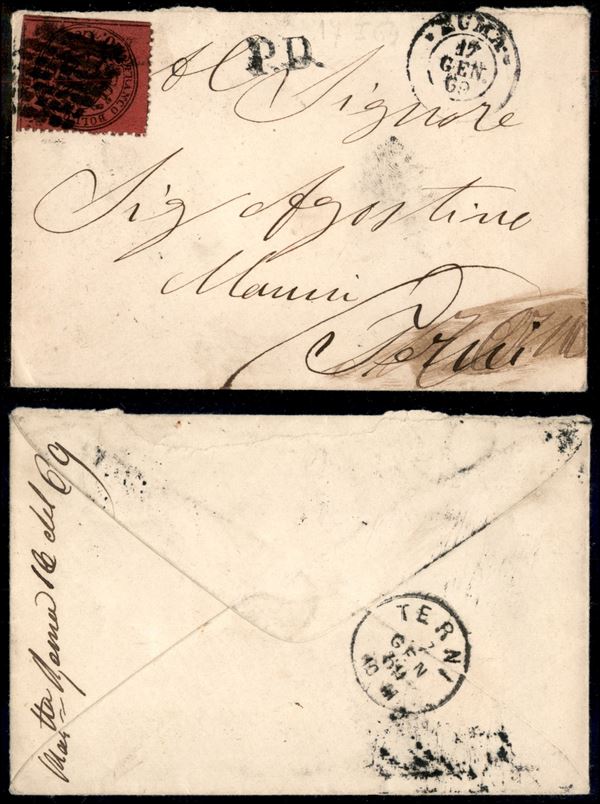 FRANCO BOL
P.D.
ROMA
17
GEN.
69
Al Signore
Sig Agostino
Manni
Terni
TERNI
GEN
69
10 M
Roma 16 del 69